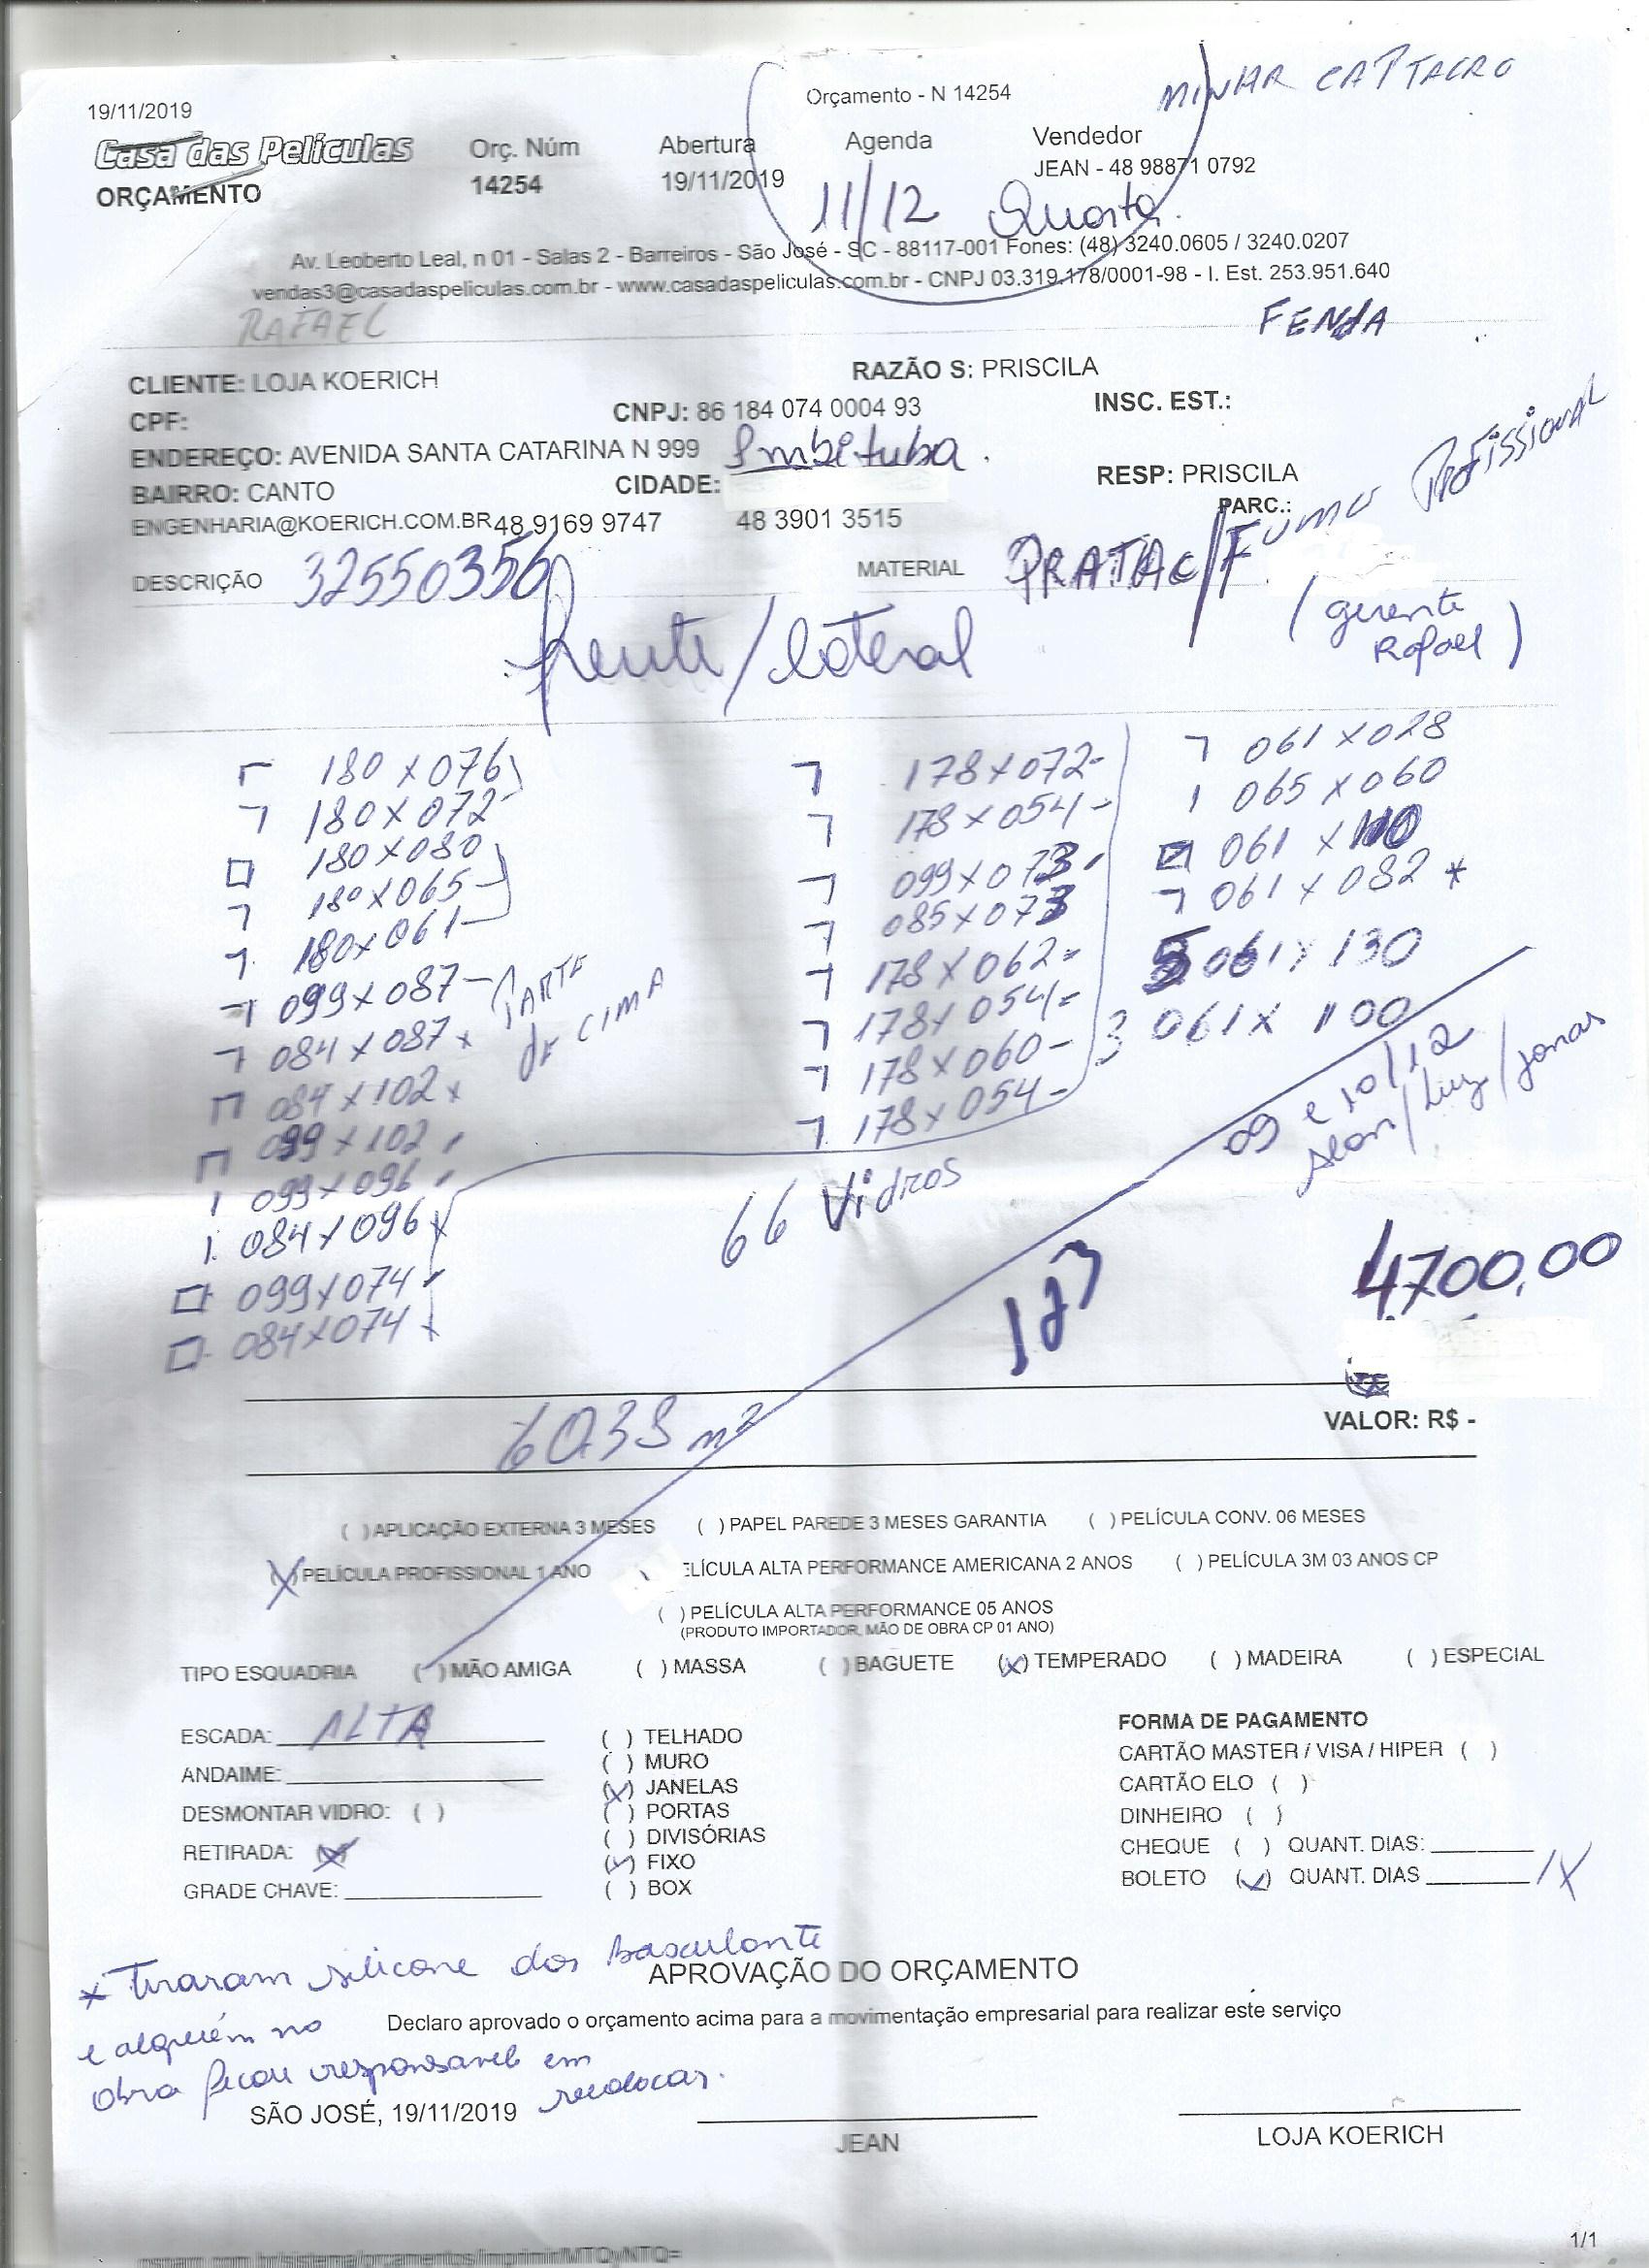 MINHAR CAPTACRO
Orçamento - N 14254
19/11/2019
Casa das Películas
Orç. Núm
Abertura
Agenda
Vendedor
ORÇAMENTO
14254
19/11/2019
JEAN - 48 98871 0792
11/12 Quarta.
Av. Leoberto Leal, n 01 - Salas 2 - Barreiros - São José - SC - 88117-001 Fones: (48) 3240.0605 / 3240.0207
vendas3@casadaspeliculas.com.br - www.casadaspeliculas.com.br - CNPJ 03.319.178/0001-98 - I. Est. 253.951.640
RAFAEL
FENdA
CLIENTE: LOJA KOERICH
RAZÃO S: PRISCILA
CPF:
CNPJ: 86 184 074 0004 93
INSC. EST.:
ENDEREÇO: AVENIDA SANTA CATARINA N 999 Imbituba.
BAIRRO: CANTO
CIDADE:
RESP: PRISCILA
ENGENHARIA@KOERICH.COM.BR 48 9169 9747
48 3901 3515
PARC.:
DESCRIÇÃO 32550356
MATERIAL PRATAC/Fumo Profissional
(gerente
Rafael)
frente/lateral
180 x 076
180 x 072
180 x 080
180 x 065
180 x 061
099 x 087 - PARTE
de CIMA
084 x 087 x
084 x 102 x
099 x 102
099 x 096
084 x 096 x
099 x 074
084 x 074 x
178 x 072-
178 x 054-
099 x 073
085 x 073
178 x 062-
178 x 054-
178 x 060-
178 x 054-
061 x 028
1 065 x 060
061 x 110
061 x 082 *
5 061 x 130
3 061 x 100
09 e 10/12
Jean/Luiz/Jonas
66 Vidros
4700,00
6038 m²
VALOR: R$ -
( ) APLICAÇÃO EXTERNA 3 MESES ( ) PAPEL PAREDE 3 MESES GARANTIA ( ) PELÍCULA CONV. 06 MESES
(X) PELÍCULA PROFISSIONAL 1 ANO
ELÍCULA ALTA PERFORMANCE AMERICANA 2 ANOS ( ) PELÍCULA 3M 03 ANOS CP
( ) PELÍCULA ALTA PERFORMANCE 05 ANOS
(PRODUTO IMPORTADOR, MÃO DE OBRA CP 01 ANO)
TIPO ESQUADRIA ( ) MÃO AMIGA ( ) MASSA ( ) BAGUETE (x) TEMPERADO ( ) MADEIRA ( ) ESPECIAL
ESCADA: ALTA
ANDAIME:
DESMONTAR VIDRO: ( )
RETIRADA: (x)
GRADE CHAVE:
( ) TELHADO
( ) MURO
(x) JANELAS
( ) PORTAS
( ) DIVISÓRIAS
(x) FIXO
( ) BOX
FORMA DE PAGAMENTO
CARTÃO MASTER / VISA / HIPER ( )
CARTÃO ELO ( )
DINHEIRO ( )
CHEQUE ( ) QUANT. DIAS:
BOLETO (x) QUANT. DIAS 1X
* Tiraram silicone dos basculante
e alguém no
obra ficou responsavel em
recolocar.
APROVAÇÃO DO ORÇAMENTO
Declaro aprovado o orçamento acima para a movimentação empresarial para realizar este serviço
SÃO JOSÉ, 19/11/2019
JEAN
LOJA KOERICH
1/1